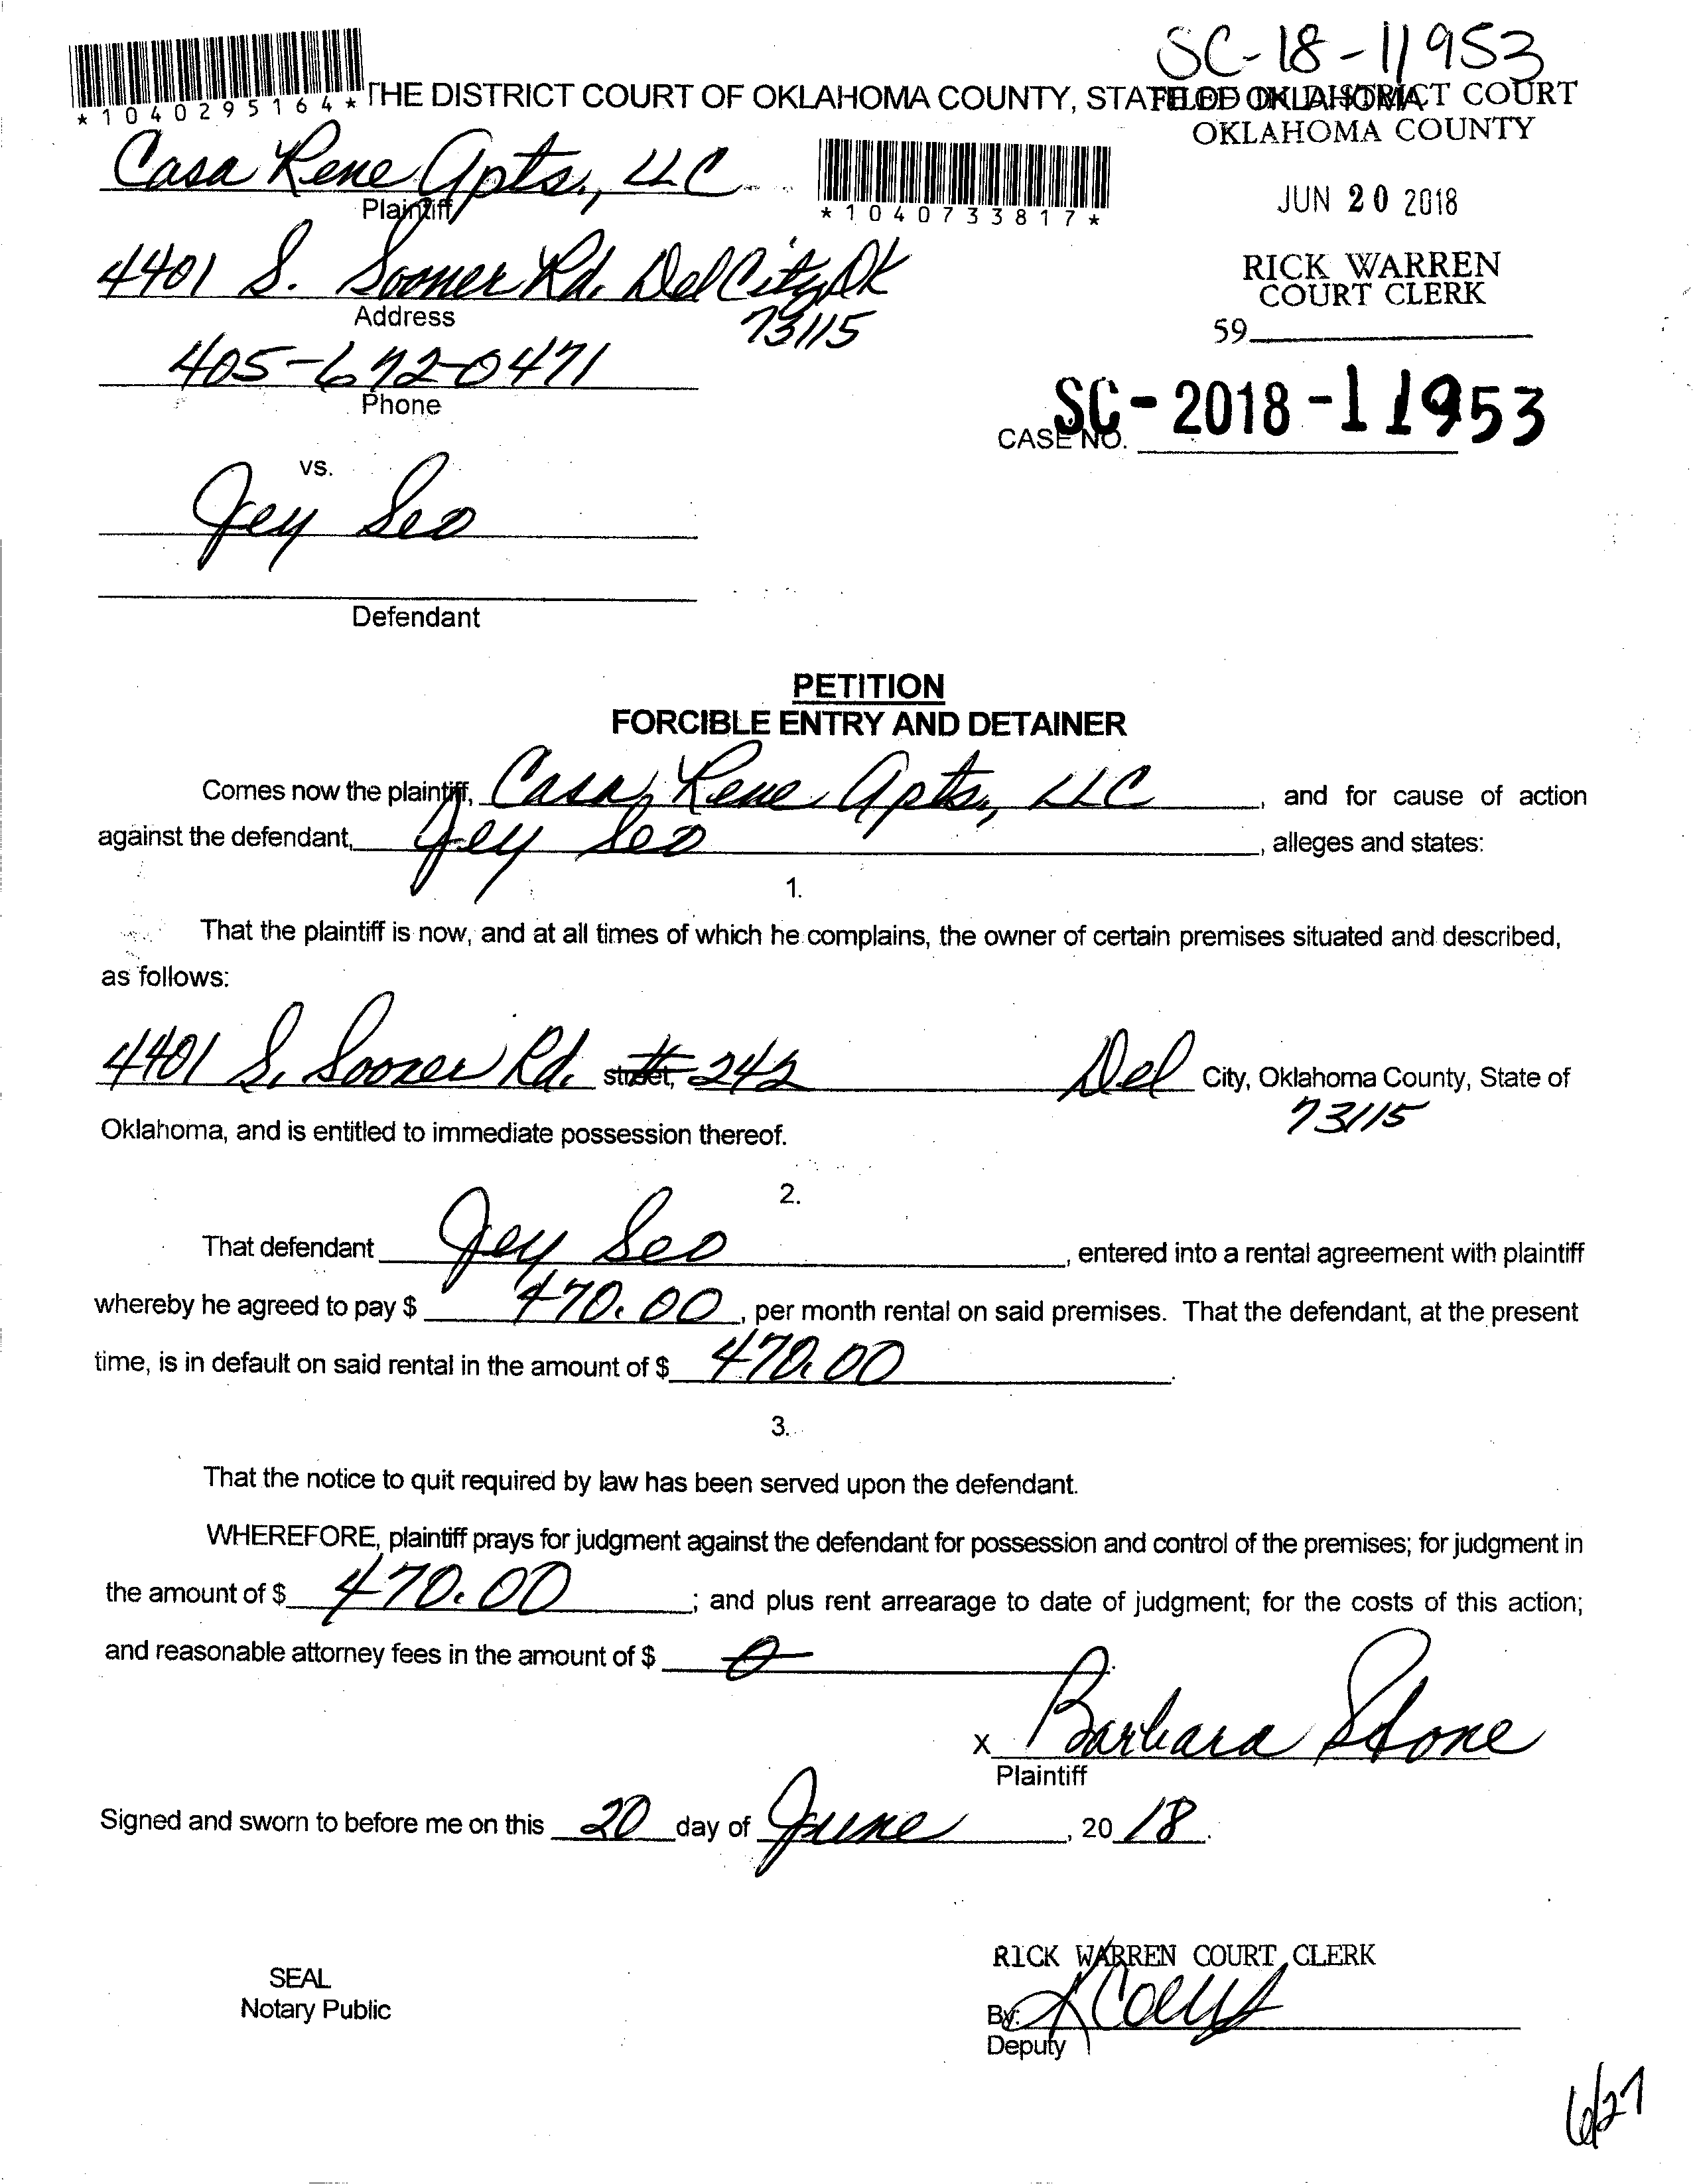 SC-18-11953
*1040295164* THE DISTRICT COURT OF OKLAHOMA COUNTY, STATE OF OKLAHOMA
FILED IN DISTRICT COURT
OKLAHOMA COUNTY
Casa Rene Apts, LLC
Plaintiff
*1040733817*
JUN 20 2018
4401 S. Sooner Rd. Del City, OK
73115
Address
RICK WARREN
COURT CLERK
59
405-672-0471
Phone
CASE NO. SC-2018-11953
vs.
Jey Seo
Defendant
PETITION
FORCIBLE ENTRY AND DETAINER
Comes now the plaintiff, Casa Rene Apts, LLC, and for cause of action
against the defendant, Jey Seo, alleges and states:
1.
That the plaintiff is now, and at all times of which he complains, the owner of certain premises situated and described,
as follows:
4401 S. Sooner Rd. street, # 242 Del City, Oklahoma County, State of
73115
Oklahoma, and is entitled to immediate possession thereof.
2.
That defendant Jey Seo, entered into a rental agreement with plaintiff
whereby he agreed to pay $ 470.00, per month rental on said premises. That the defendant, at the present
time, is in default on said rental in the amount of $ 470.00.
3.
That the notice to quit required by law has been served upon the defendant.
WHEREFORE, plaintiff prays for judgment against the defendant for possession and control of the premises; for judgment in
the amount of $ 470.00; and plus rent arrearage to date of judgment; for the costs of this action;
and reasonable attorney fees in the amount of $ 0.
x Barbara Stone
Plaintiff
Signed and sworn to before me on this 20 day of June, 2018.
SEAL
Notary Public
RICK WARREN COURT CLERK
By:
Deputy
6/27